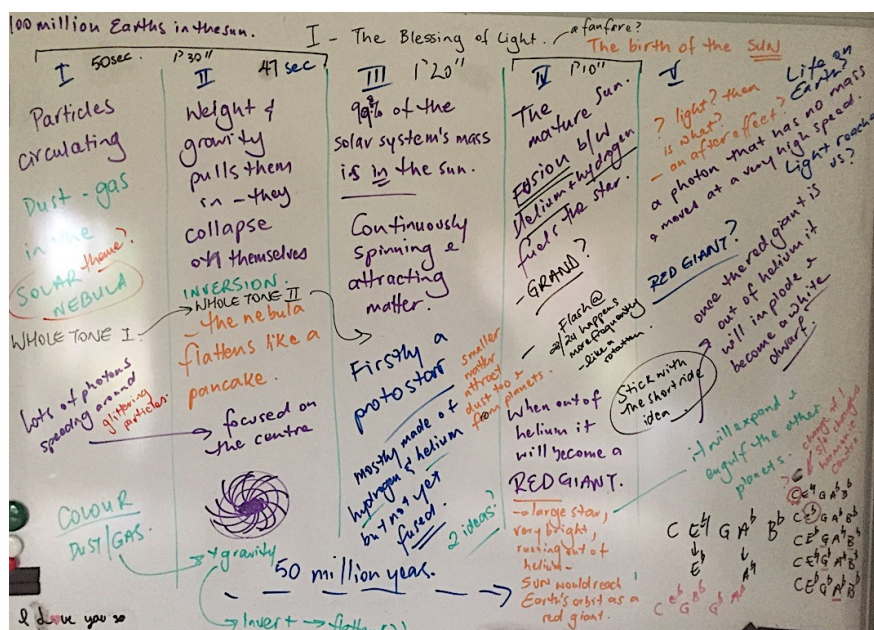 100 million Earths in the sun.
I - The Blessing of Light.
a fanfare?
The birth of the SUN
I 50sec.
Particles
circulating
Dust - gas
in the
SOLAR theme?
NEBULA
WHOLE TONE I.
Lots of photons
speeding around
glittering
particles.
COLOUR
DUST/GAS.
I Love you so
1'30"
II 47 sec
Weight &
gravity
pulls them
in - they
collapse
on themselves
INVERSION
WHOLE TONE II
- the nebula
flattens like a
pancake.
focused on
the centre
+ gravity
Invert →
50 million years.
III 1'20"
99% of the
solar system's mass
is in the sun.
Continuously
spinning &
attracting
matter.
Firstly a
protostar
mostly made of
hydrogen & helium
but not yet
fused.
smaller
matter
attract
dust too &
from planets.
2 ideas?
IV 1'10"
The
mature sun.
Fusion b/w
Helium + hydrogen
fuels the star.
- GRAND?
Flash @
happens
more frequently
- like a
rotation.
When out of
helium it
will become a
RED GIANT.
- a large star,
very bright,
running out of
helium -
SUN would reach
Earth's orbit as a
red giant.
V
Life on
Earth?
? light? then
is what?
- an after effect?
a photon that has no mass
& moves at a very high speed.
Light reaches
us?
RED GIANT?
once the red giant is
out of helium it
will implode &
become a white
dwarf.
Stick with
the short ride
idea.
it will expand &
engulf the other
planets.
C E♮ G A♭ B♭
E♭
A♮
C E♮ G A♭ B♭
C E♭ G A♭ B♭